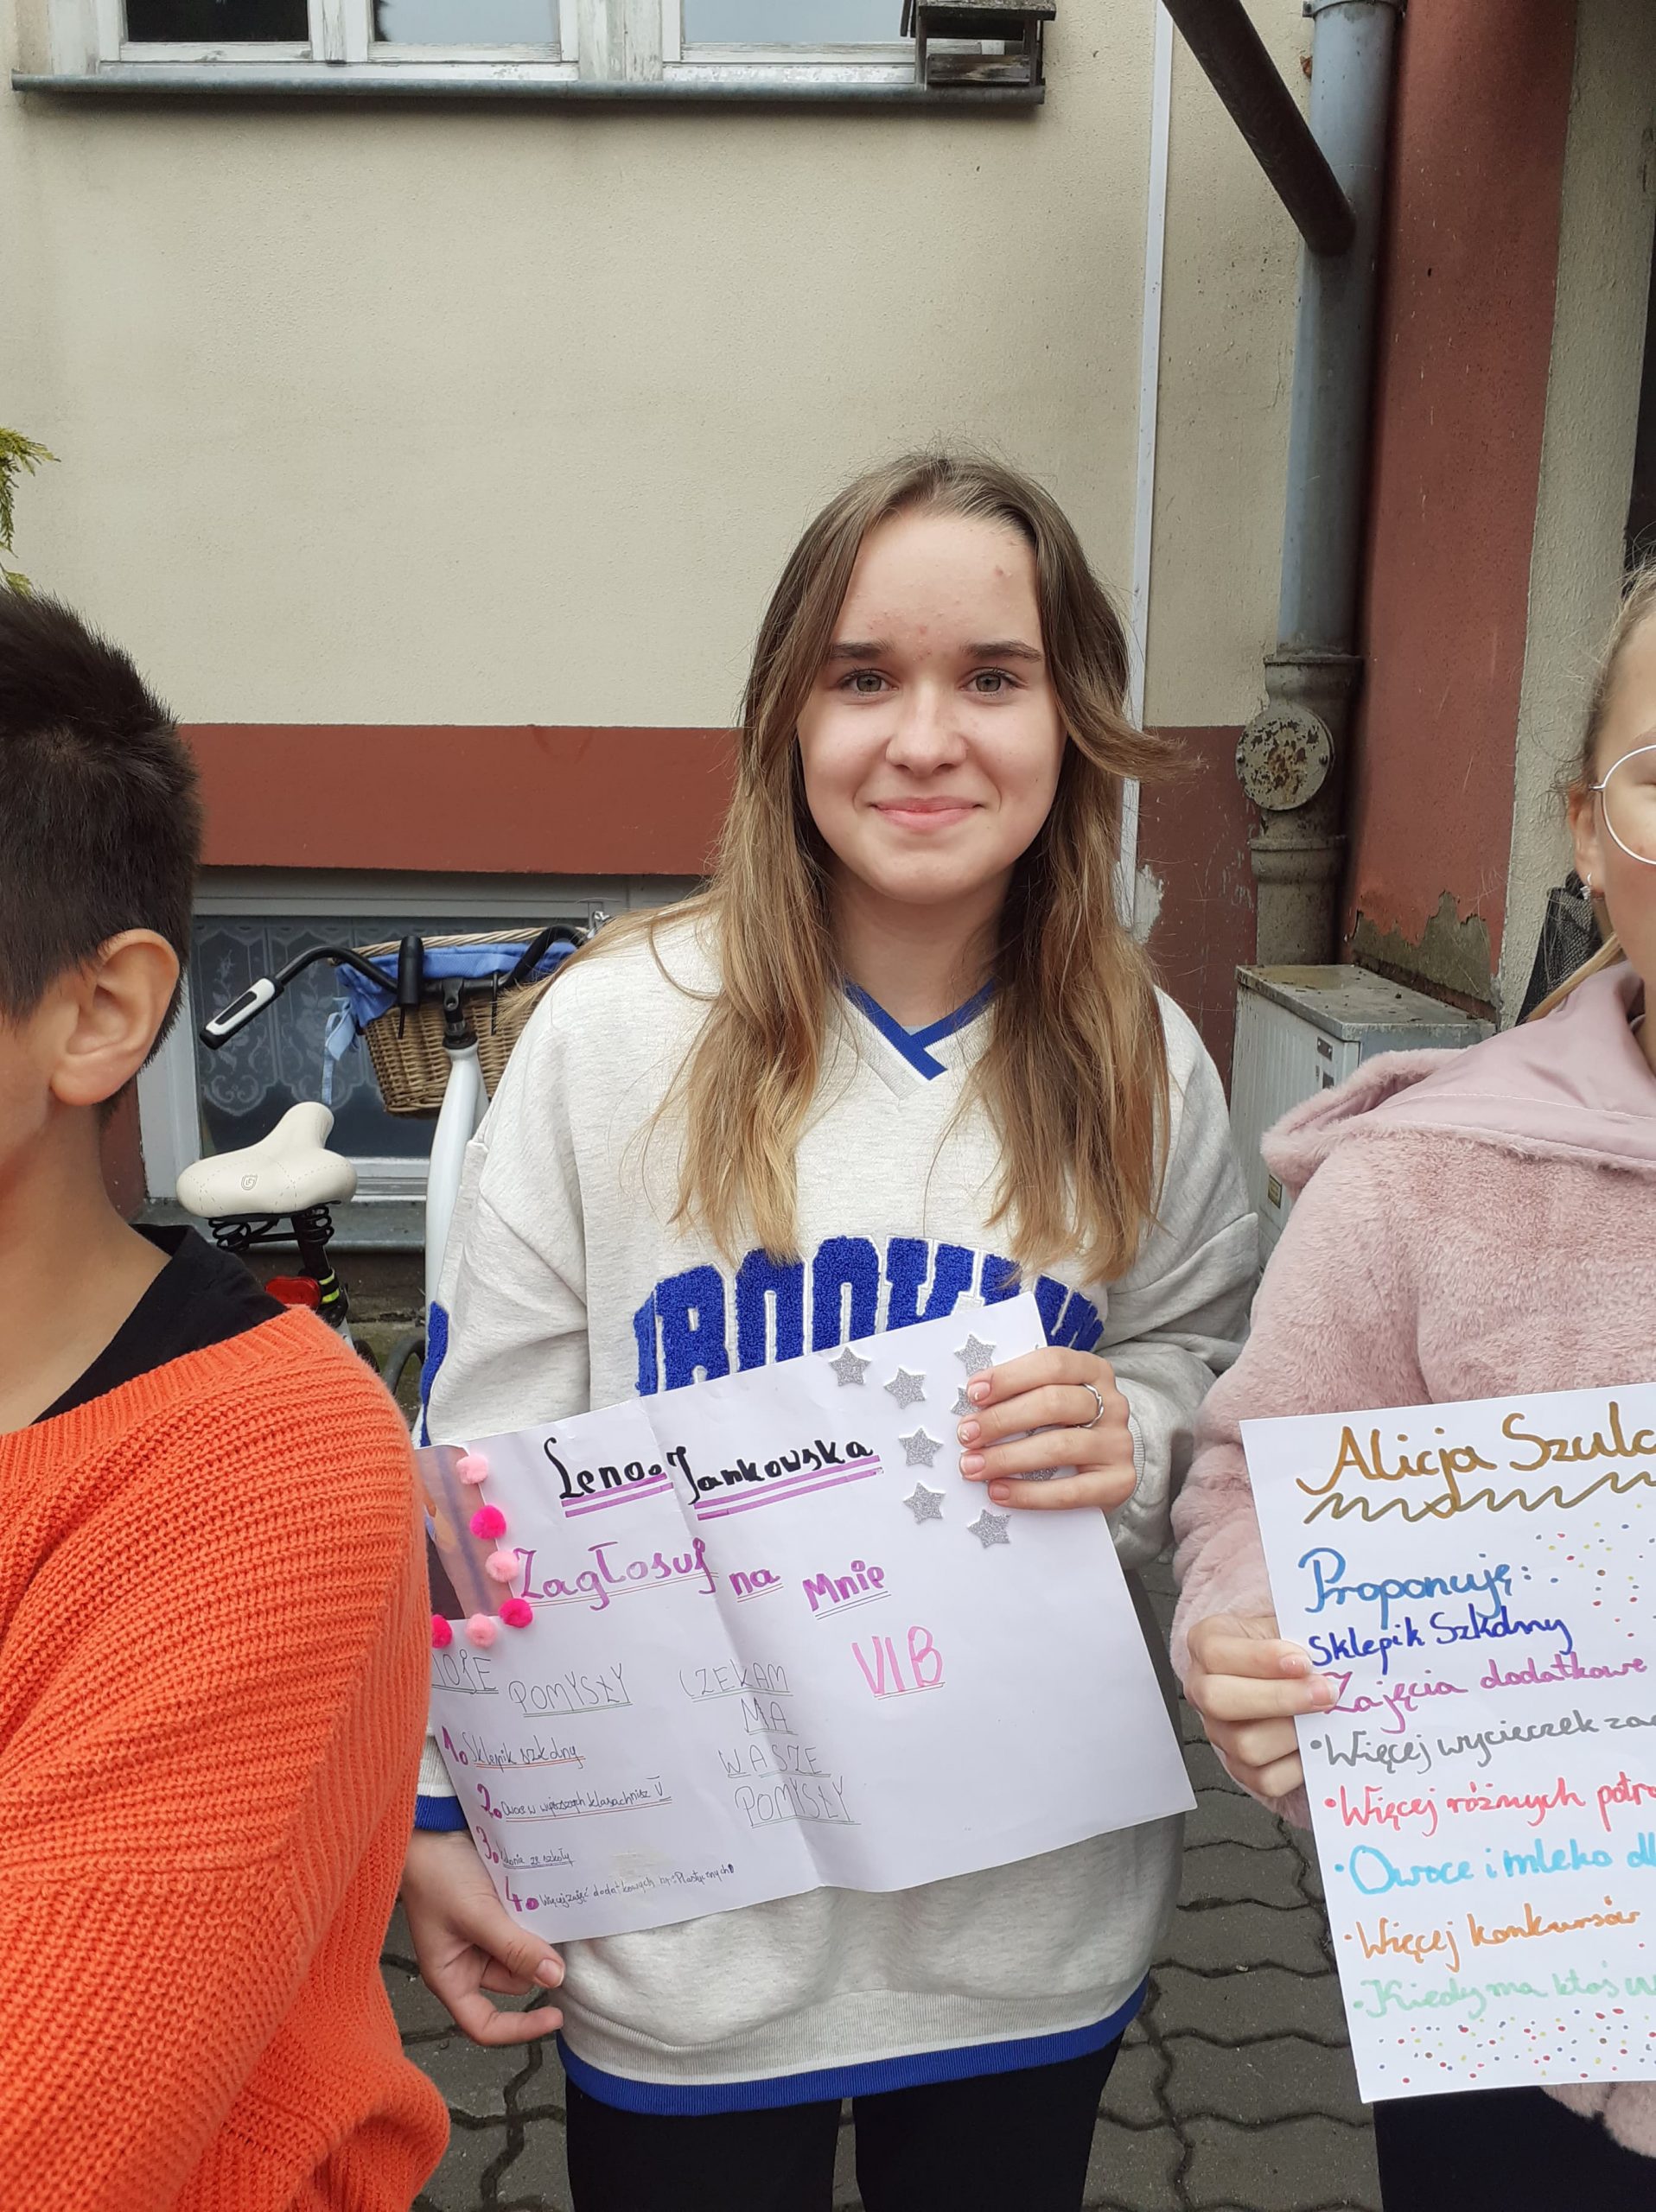 BROOKLYN
Lena Jankowska
Zagłosuj na Mnie
VIB
POMYSŁY
1. Sklepik szkolny
2. Owoce w wyższych klasach niż V
3.
4. Więcej zajęć dodatkowych np. Plastycznych
CZEKAM
NA
WASZE
POMYSŁY
Alicja Szulc
Proponuję:
Sklepik Szkolny
Zajęcia dodatkowe
• Więcej wycieczek
• Więcej różnych
• Owoce i mleko
• Więcej konkursów
• Kiedy ma ktoś